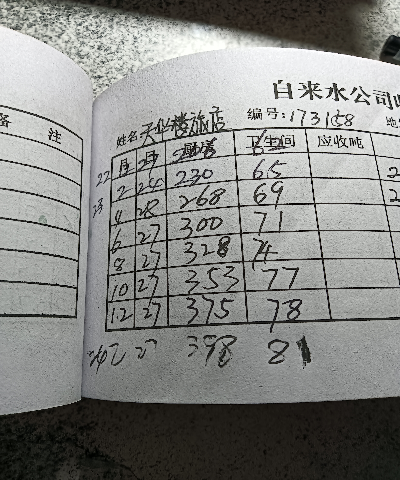 备 注
自来水公司
姓名 天仙楼旅店 编号:173158
月 日 卫生间 应收吨
22 2 24 230 65
23 4 28 268 69
6 27 300 71
8 27 328 74
10 27 353 77
12 27 375 78
2 27 398 81